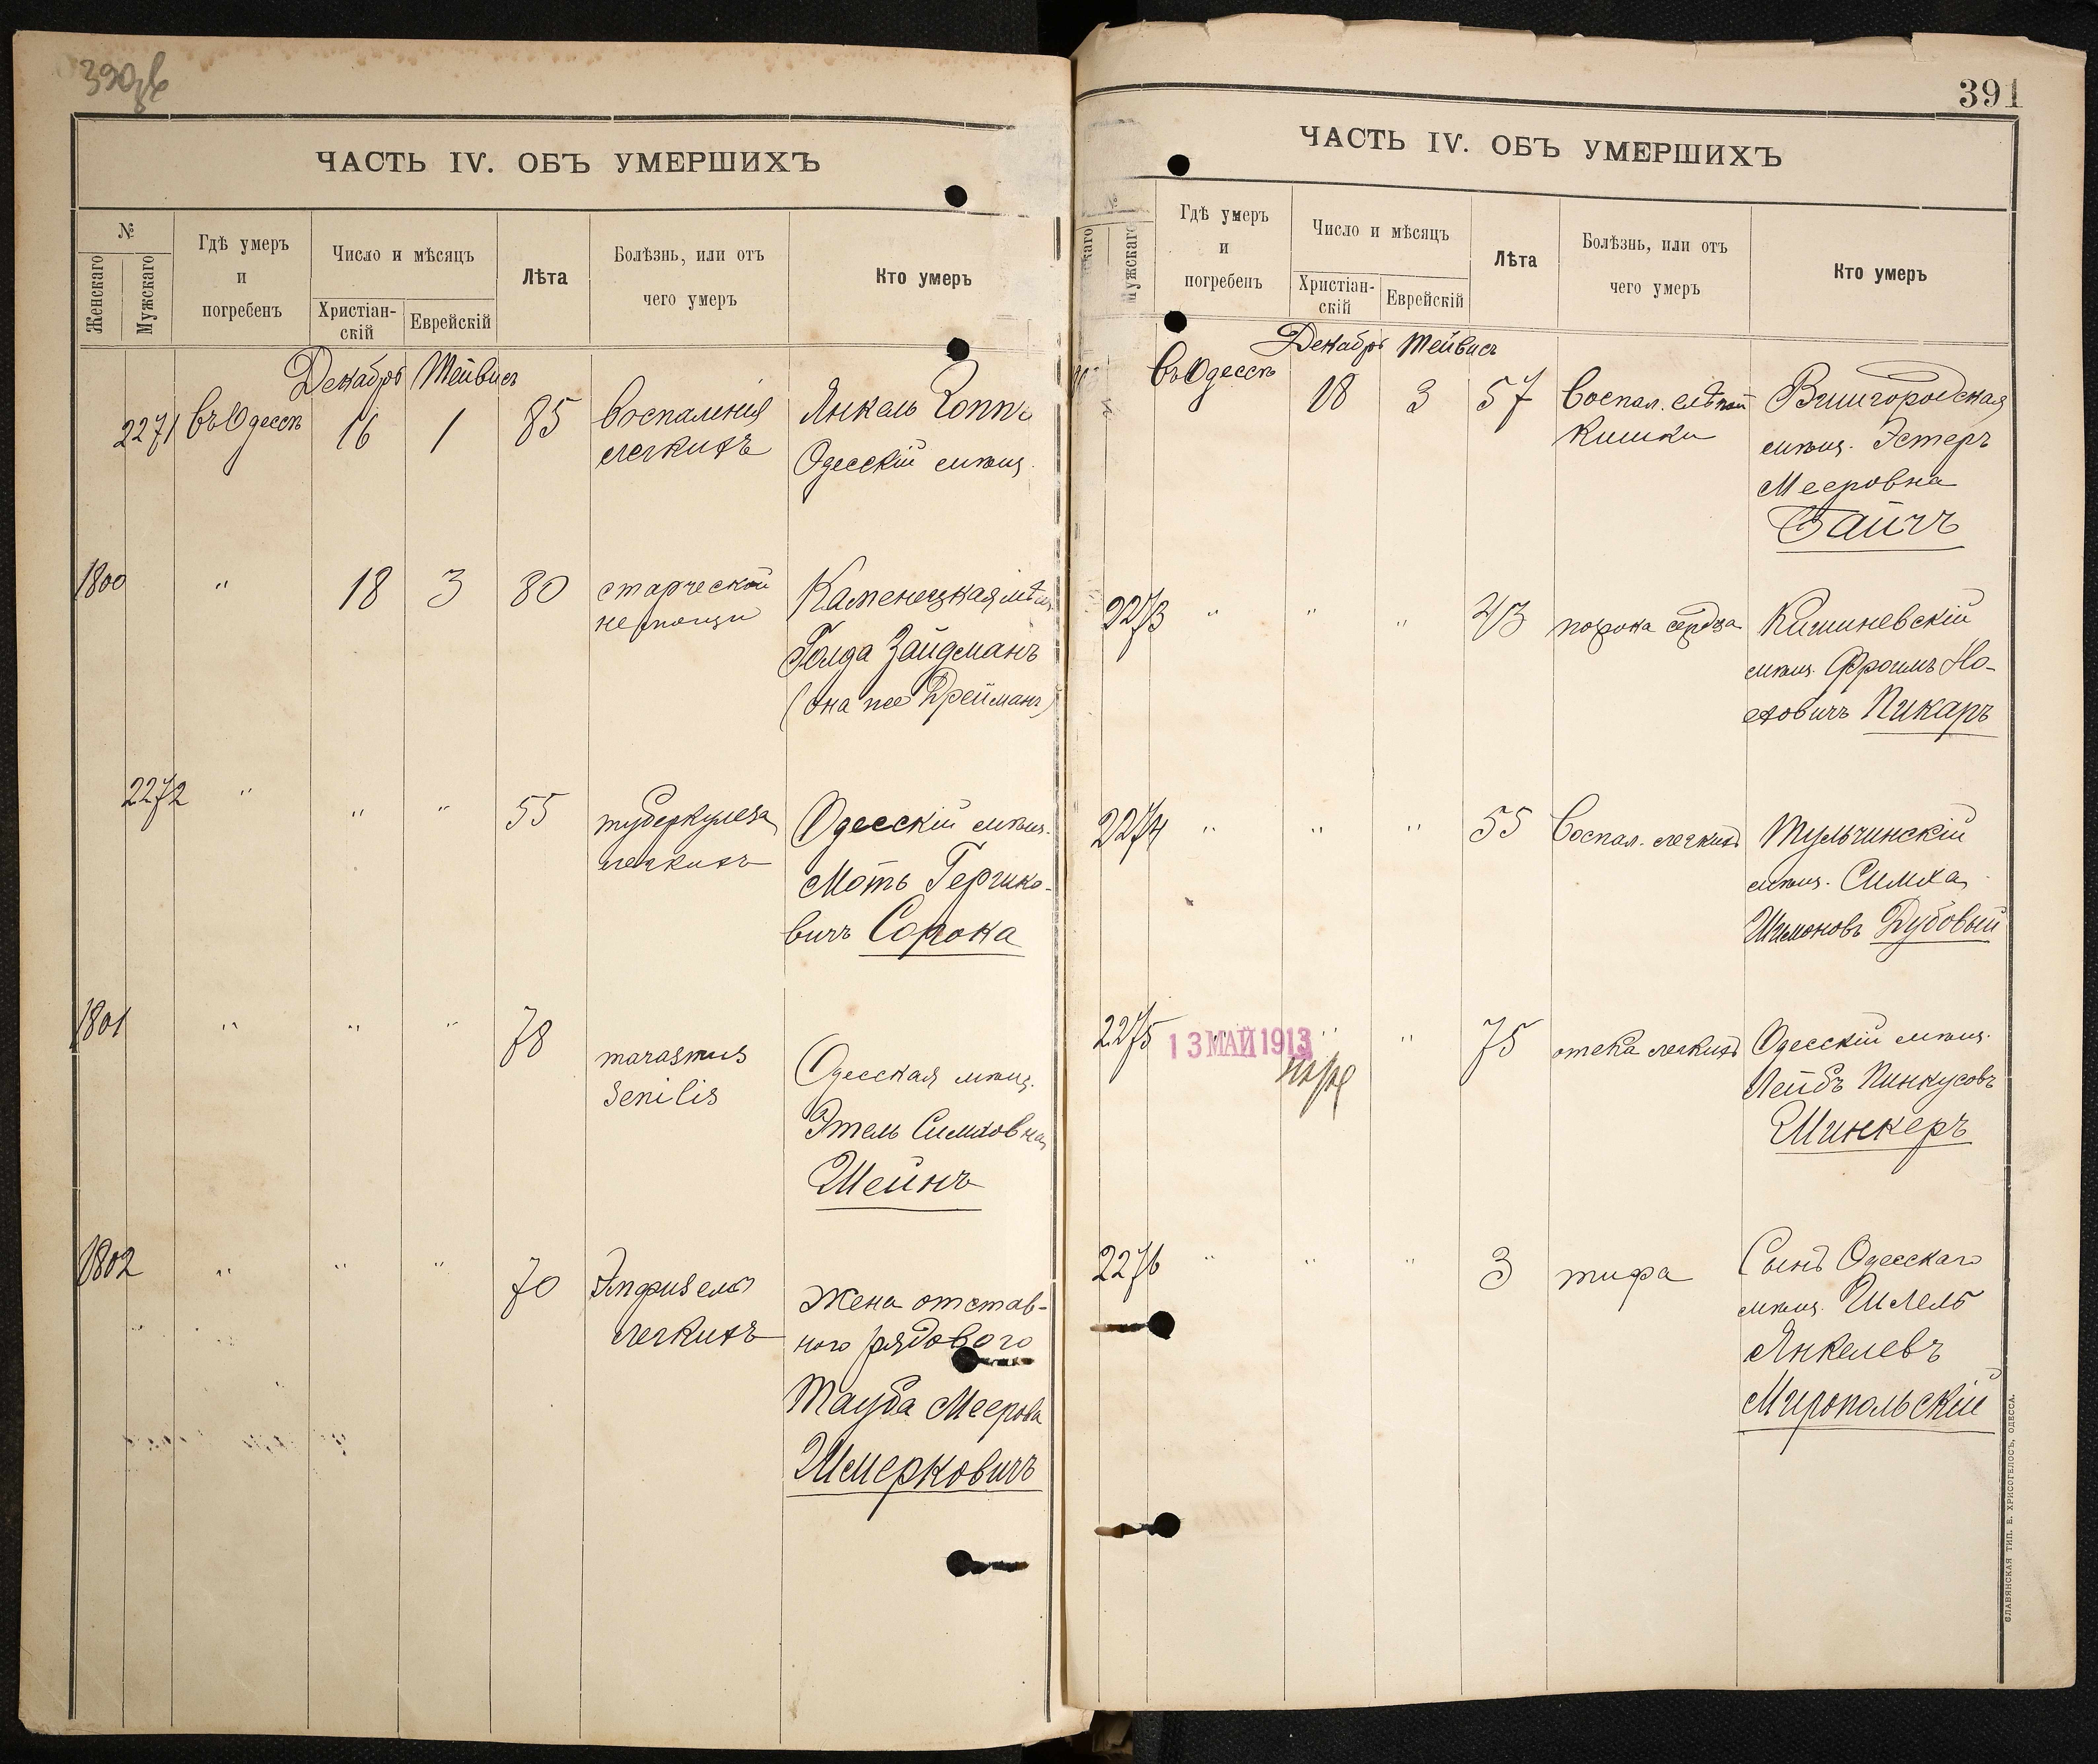 390 об
ЧАСТЬ IV. ОБЪ УМЕРШИХЪ
№
Женскаго
Мужскаго
Гдѣ умеръ
и
погребенъ
Число и мѣсяцъ
Христіан-
скій
Еврейскій
Лѣта
Болѣзнь, или отъ
чего умеръ
Кто умеръ
Декабрь Тейвисъ
2271 въ Одессѣ 16 1 85 воспаленія Янкель Коппъ
легкихъ Одесскій мѣщ.
1800 " 18 3 80 старческой Каменецкая мѣщ.
немощи
Голда Зайдманъ
(она же Дрейманъ)
2272 " " " 55 туберкулеза Одесскій мѣщ.
легкихъ Моть Гершко-
вичъ Сорока
1801 " " " 78 marasmus
senilis Одесская мѣщ.
Этель Симховна
Шейнъ
1802 " " " 70 Эмфизема Жена отстав-
легкихъ ного рядового
Тауба Меерова
Шмерковичъ
391
ЧАСТЬ IV. ОБЪ УМЕРШИХЪ
№
Мужскаго
Гдѣ умеръ
и
погребенъ
Число и мѣсяцъ
Христіан-
скій
Еврейскій
Лѣта
Болѣзнь, или отъ
чего умеръ
Кто умеръ
Декабрь Тейвисъ
въ Одессѣ 18 3 57 Воспал. слѣпой Вышгородская
кишки мѣщ. Эстеръ
Мееровна
Байчъ
2273 " " " 43 порока сердца Кишиневскій
мѣщ. Фроимъ Но-
ховичъ Пикаръ
2274 " " " 55 Воспал. легкихъ Тульчинскій
мѣщ. Симха
Шимоновъ Дубовый
2275 13 МАЙ 1913 " " 75 отека легкихъ Одесскій мѣщ.
Лейбъ Пинкусовъ
Шинкеръ
2276 " " " 3 тифа Сынъ Одесскаго
мѣщ. Шлель
Янкелевъ
Миропольскій
СЛАВЯНСКАЯ ТИП. Е. ХРИСОГЕЛОСЪ, ОДЕССА.